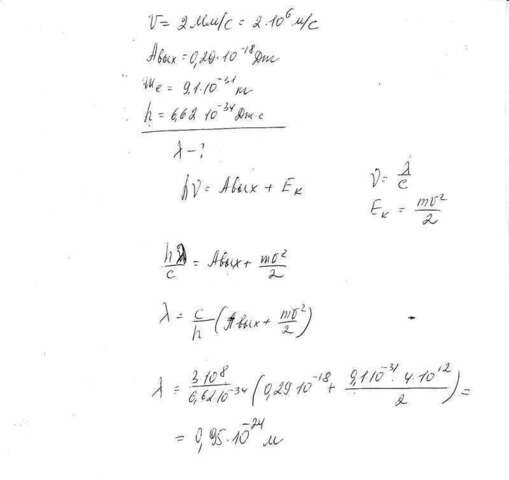 V = 2 Мм/с = 2·10⁶ м/с
Aвых = 0,29·10⁻¹⁸ Дж
me = 9,1·10⁻³¹ кг
h = 6,62 10⁻³⁴ Дж·с
λ - ?
hν = Aвых + Eк
ν = λ/c
Eк = mv²/2
hλ/c = Aвых + mv²/2
λ = c/h (Aвых + mv²/2)
λ = 3 10⁸/6,62 10⁻³⁴ (0,29 10⁻¹⁸ + 9,1 10⁻³¹ · 4 10¹²/2) =
= 0,95·10⁻²⁴ м